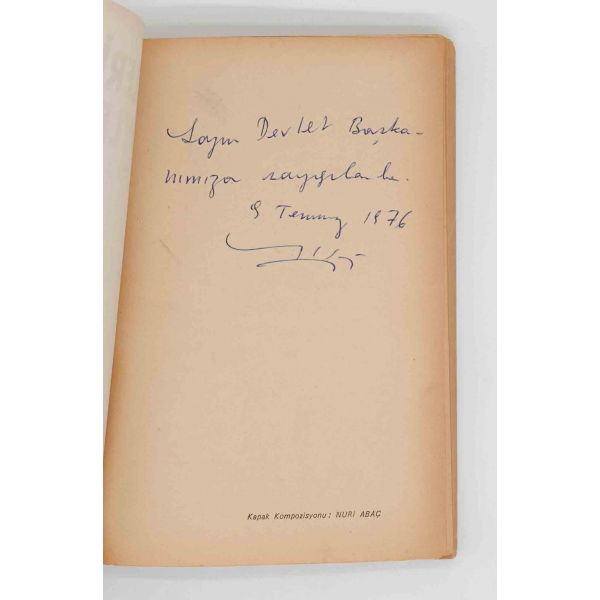 Sayın Devlet Başka-
nımıza saygılarla.
9 Temmuz 1976
Kapak Kompozisyonu: NURİ ABAÇ